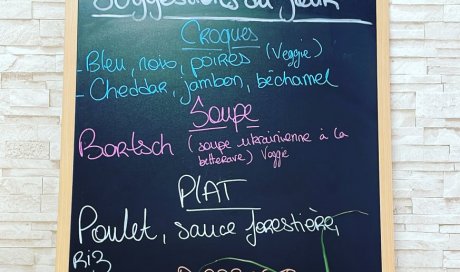 Suggestions du jour
Croques
- Bleu, noix, poires (Veggie)
- Cheddar, jambon, béchamel
Soupe
Bortsch (soupe ukrainienne à la
betterave) Veggie
PLAT
Poulet, sauce forestière,
Riz